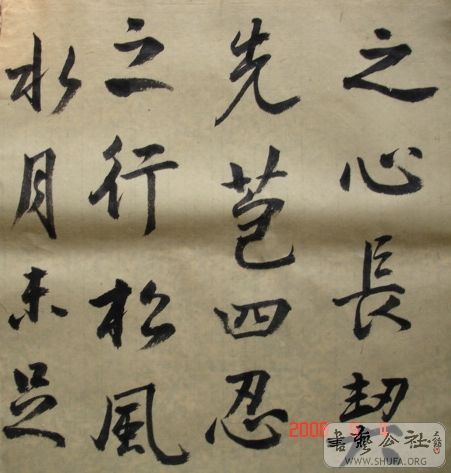 之心長契
先苞四忍
之行松風
水月未足
書藝公社
WWW.SHUFA.ORG